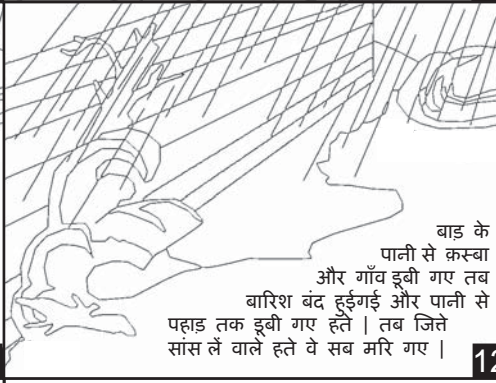 बाड़ के
पानी से क़स्बा
और गाँव डूबी गए तब
बारिश बंद हुईगई और पानी से
पहाड़ तक डूबी गए हते | तब जित्ते
सांस लें वाले हते वे सब मरि गए |
12